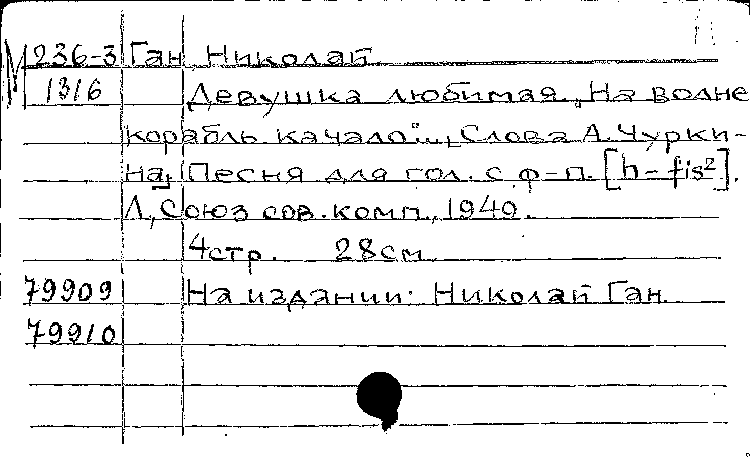 М 236-3 Ган Николай
1316 Девушка любимая „На волне
корабль качало"... Слова А. Чурки-
на, Песня для гол. с ф-п. [h-fis²].
Л, Союз сов. комп., 1940.
4стр. 28см
79909 На издании: Николай Ган
79910